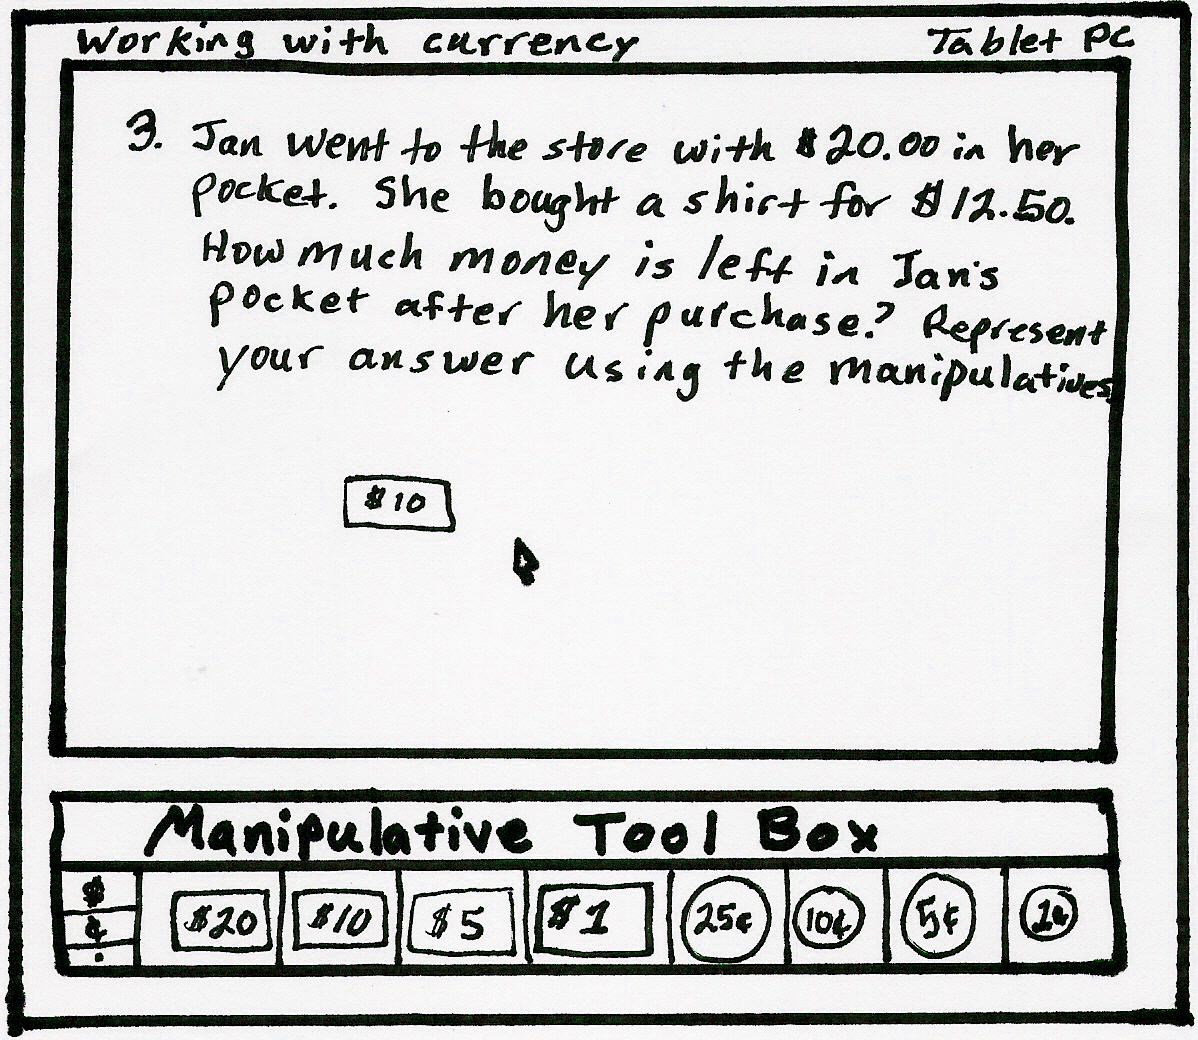 Working with currency
Tablet PC
3. Jan went to the store with $20.00 in her
pocket. She bought a shirt for $12.50.
How much money is left in Jan's
pocket after her purchase? Represent
your answer using the manipulatives.
$10
Manipulative Tool Box
$
¢
.
$20 $10 $5 $1 25¢ 10¢ 5¢ 1¢